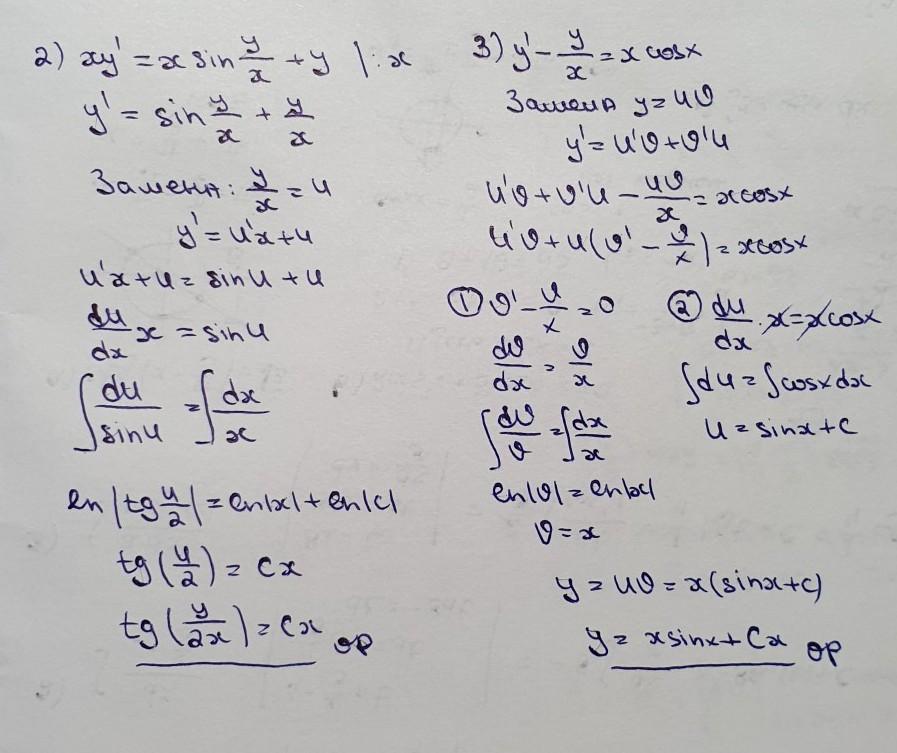 2) xy' = x sin y/x + y |: x
y' = sin y/x + y/x
Замена: y/x = u
y' = u'x + u
u'x + u = sin u + u
du/dx x = sin u
∫ du/sin u = ∫ dx/x
ln |tg u/2| = ln|x| + ln|c|
tg (u/2) = cx
tg (y/2x) = cx ор
3) y' - y/x = x cos x
Замена y = uϑ
y' = u'ϑ + ϑ'u
u'ϑ + ϑ'u - uϑ/x = x cos x
u'ϑ + u(ϑ' - ϑ/x) = x cos x
① ϑ' - u/x = 0
dϑ/dx = ϑ/x
∫ dϑ/ϑ = ∫ dx/x
ln|ϑ| = ln|x|
ϑ = x
② du/dx · x = x cos x
∫ du = ∫ cos x dx
u = sin x + c
y = uϑ = x(sin x + c)
y = x sin x + Cx ор